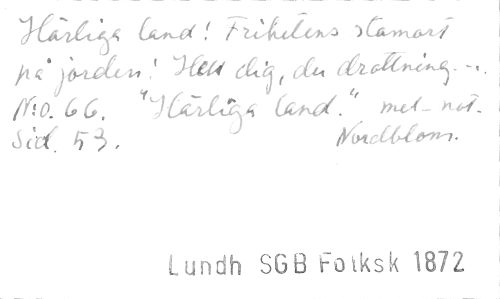 Härliga land! Frihetens stamort
på jorden! Hell dig, du drottning...
N:o. 66. "Härliga land." mel-not.
Sid. 53. Nordblom.
Lundh SGB Folksk 1872